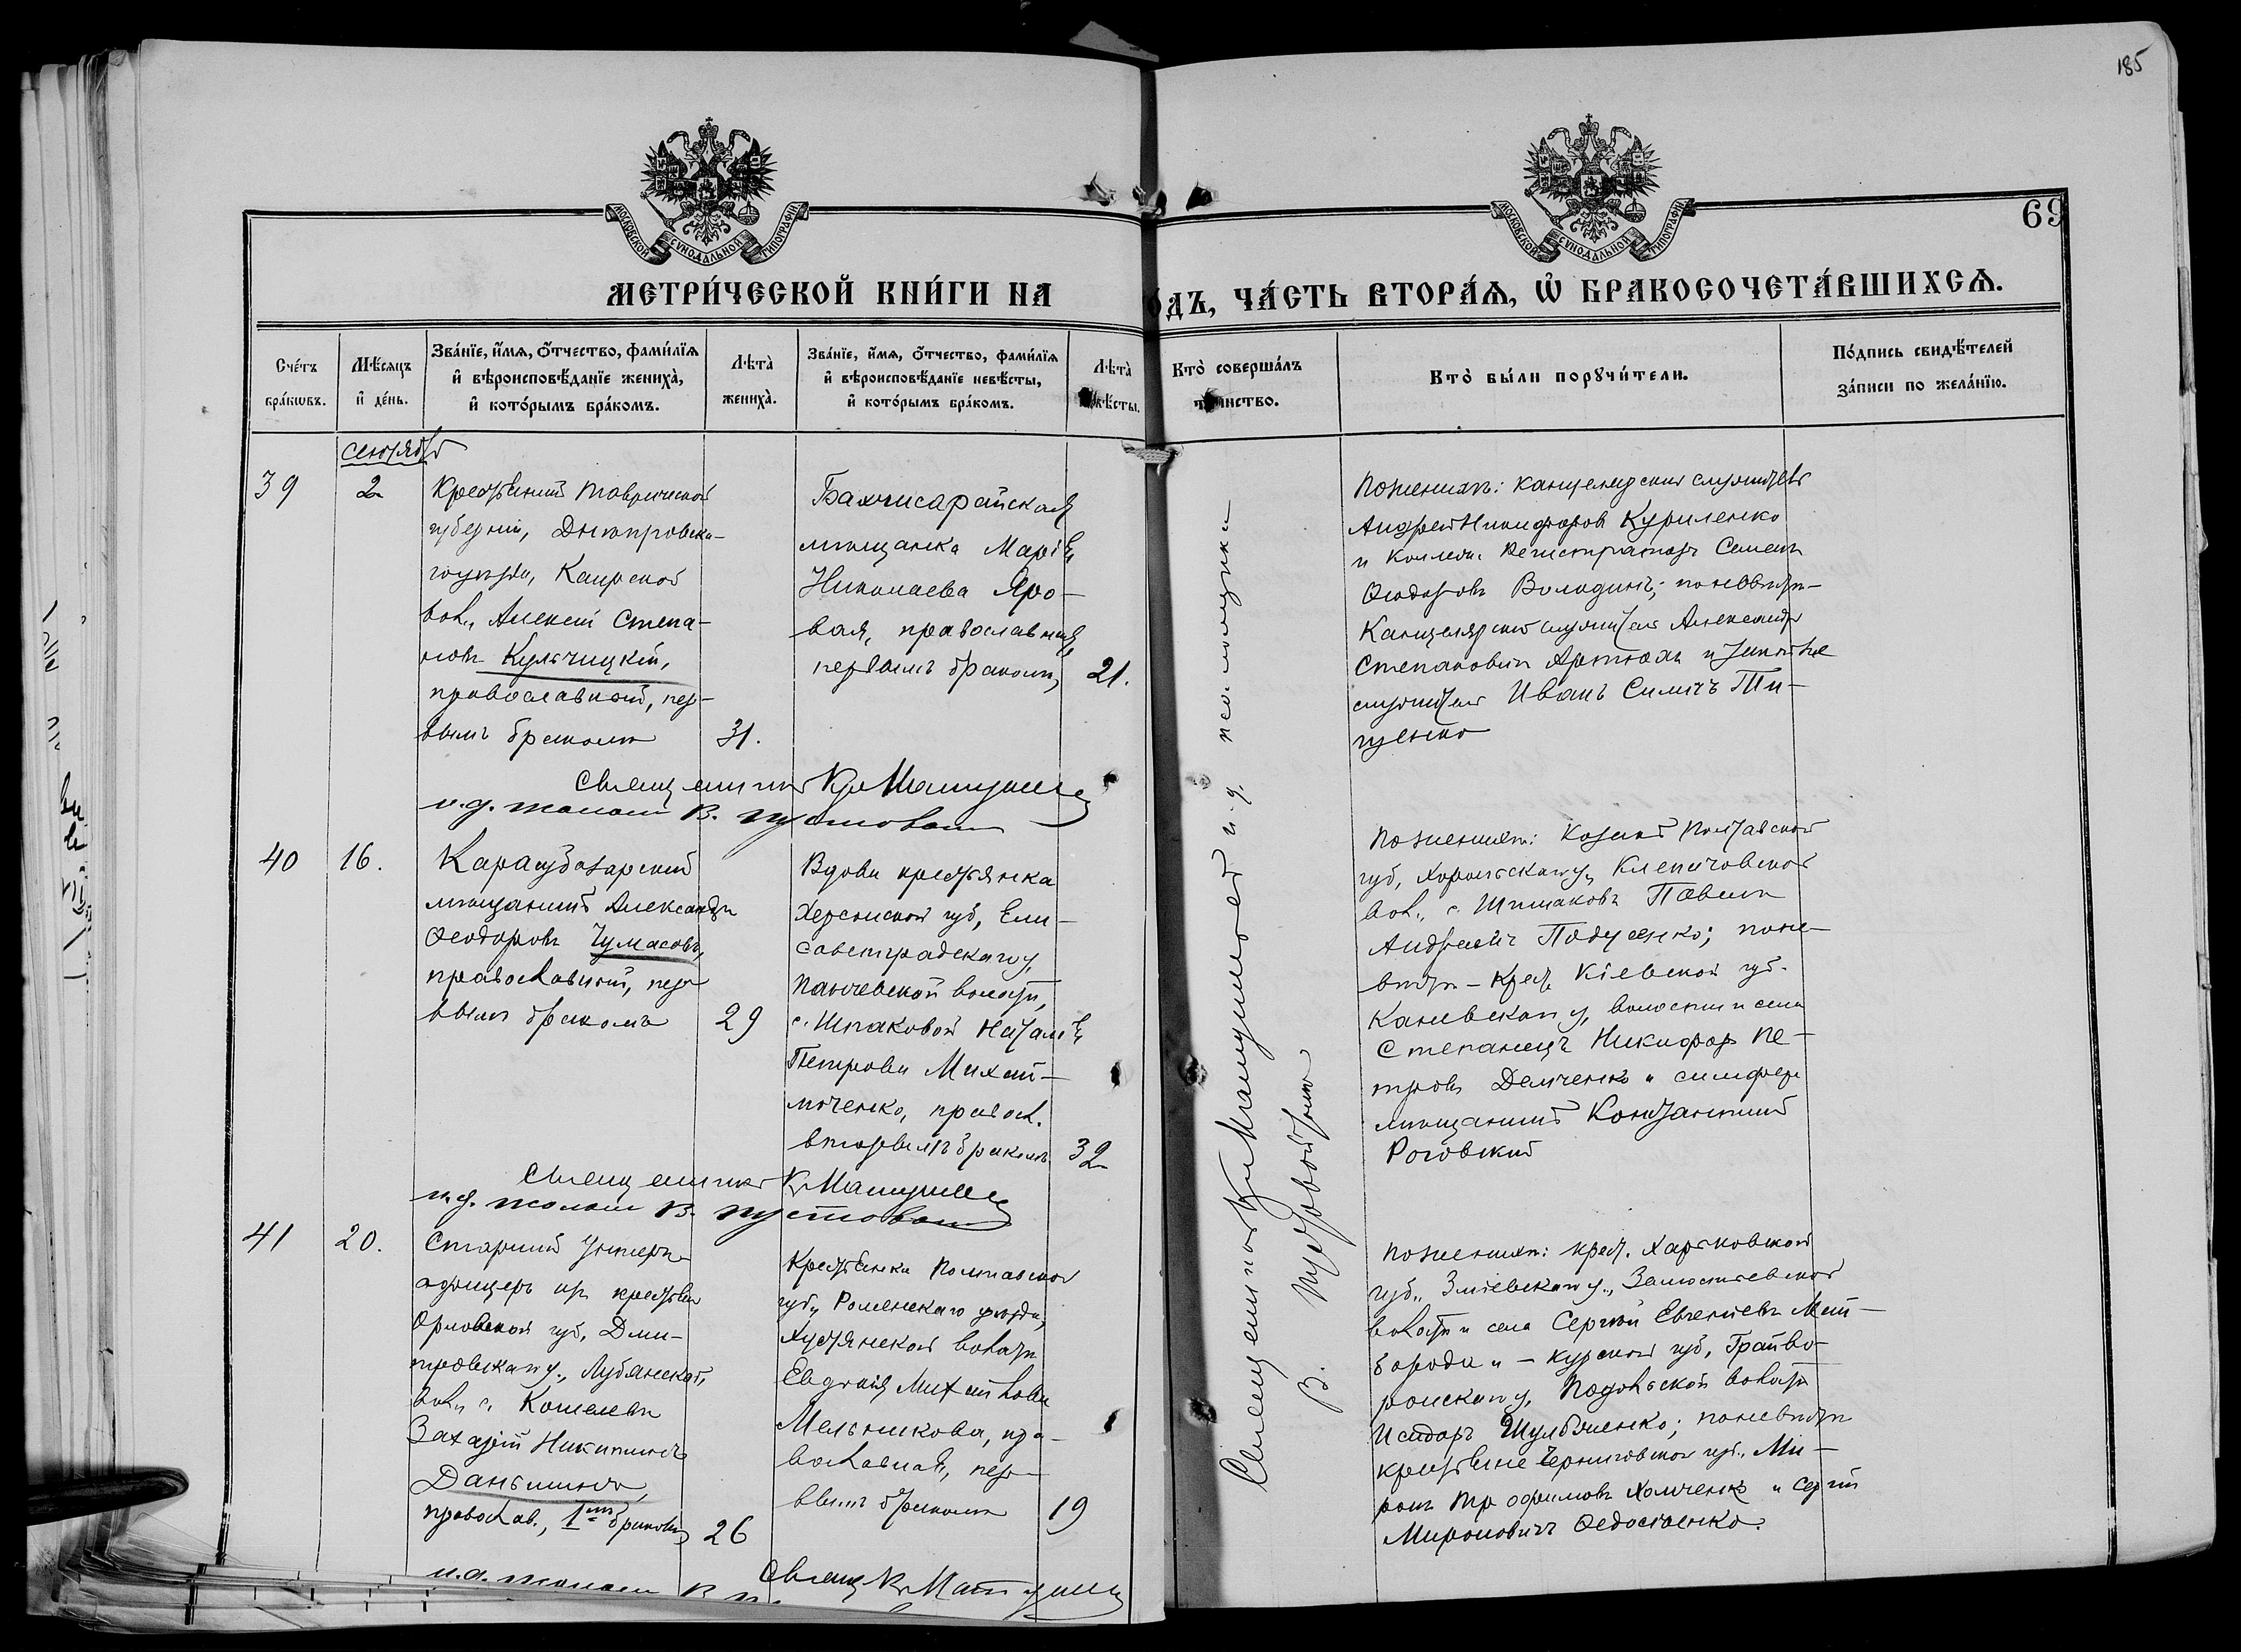 185
69
МОСКОВСКОЙ СѴНОДАЛЬНОЙ ТИПОГРАФІИ
МОСКОВСКОЙ СѴНОДАЛЬНОЙ ТИПОГРАФІИ
МЕТРИ́ЧЕСКОЙ КНИ́ГИ НА
О́ДЪ, ЧА́СТЬ ВТОРА́Ѧ, Ѡ҆ БРАКОСОЧЕТА́ВШИХСѦ.
Сче́тъ бра́кѡвъ.
Мѣ́сяцъ и҆ де́нь.
Зва́нїе, и҆́мѧ, ѻ҆́тчество, фами́лїѧ
и҆ вѣроисповѣ́данїе жениха̀,
и҆ кото́рымъ бра́комъ.
Лѣта̀ жениха̀.
Зва́нїе, и҆́мѧ, ѻ҆́тчество, фами́лїѧ
и҆ вѣроисповѣ́данїе невѣ́сты,
и҆ кото́рымъ бра́комъ.
Лѣта̀
Кто̀ соверша́лъ
Кто̀ бы́ли порꙋчи́тели.
По́дпись свидѣ́телей
за́писи по жела́нїю.
сентябрь
39
2
Крестьянинъ Таврической
губерніи, Днѣпровска-
го уѣзда, Каирской
вол., Алексій Степа-
новъ Кульчицкій,
православный, пер-
вымъ бракомъ
31.
Бахчисарайская
мѣщанка Марія
Николаева Яро-
вая, православная,
первымъ бракомъ,
21.
По женихѣ: канцелярскій служитель
Андрей Никифоровъ Куриленко
и коллеж. регистраторъ Семенъ
Ѳеодоровъ Володинъ; по невѣстѣ-
Канцелярскій служитель Александръ
Степановичъ Артюхъ и
служитель Иванъ Симичъ Ти-
щенко
Священникъ К. Матушев
и.д. псалом. В. Пустовой
40
16.
Карасубазарскій
мѣщанинъ Александръ
Ѳеодоровъ Чумасовъ,
православный, пер-
вымъ бракомъ
29
Вдова крестьянка
Херсонской губ., Ели-
саветградскаго у,
Панчевской волости,
с. Шпаковой Наталія
Петрова Михай-
люченко, правосл.
вторымъ бракомъ
32
По женихѣ: козакъ Полтавской
губ., Хорольскаго у,
вол., с. Шишаковъ Павелъ
Андреевъ Подусенко; по не-
вѣстѣ - Крест. Кіевской губ.
Каневскаго у, волости и села
Степанецъ Никифоръ Пе-
тровъ Демченко и симфер.
мѣщанинъ Константинъ
Роговскій
Священникъ К. Матушев
и.д. псалом. В. Пустовой
41
20.
Старшій Унтеръ-
офицеръ изъ крестьян
Орловской губ., Дми-
тровскаго у., Лубянской,
вол., с. Кошелева
Захарій Никитинъ
Даньшинъ,
православ., 1мъ бракомъ,
26
Крестьянка Полтавской
губ., Роменскаго уѣзда,
Хустянской волости
Евдокія Михайлова
Мельникова, пра-
вославная, пер-
вымъ бракомъ
19
По женихѣ: крест. Харьковской
губ., Зміевскаго у.,
волости и села Сергій Евгеніевъ Май-
борода и - Курской губ., Грайво-
ронскаго у, Подольской волости
Исидоръ Шульженко; по невѣстѣ
крестьяне Черниговской губ., Ми-
ронъ Трофимовъ Холченко и Сергій
Мироновичъ Ѳедосѣенко.
Священникъ К. Матушевъ и и.д. псаломщика
В. Пустовойтъ
Свящ. К. Матушев
и.д. псалом. В.